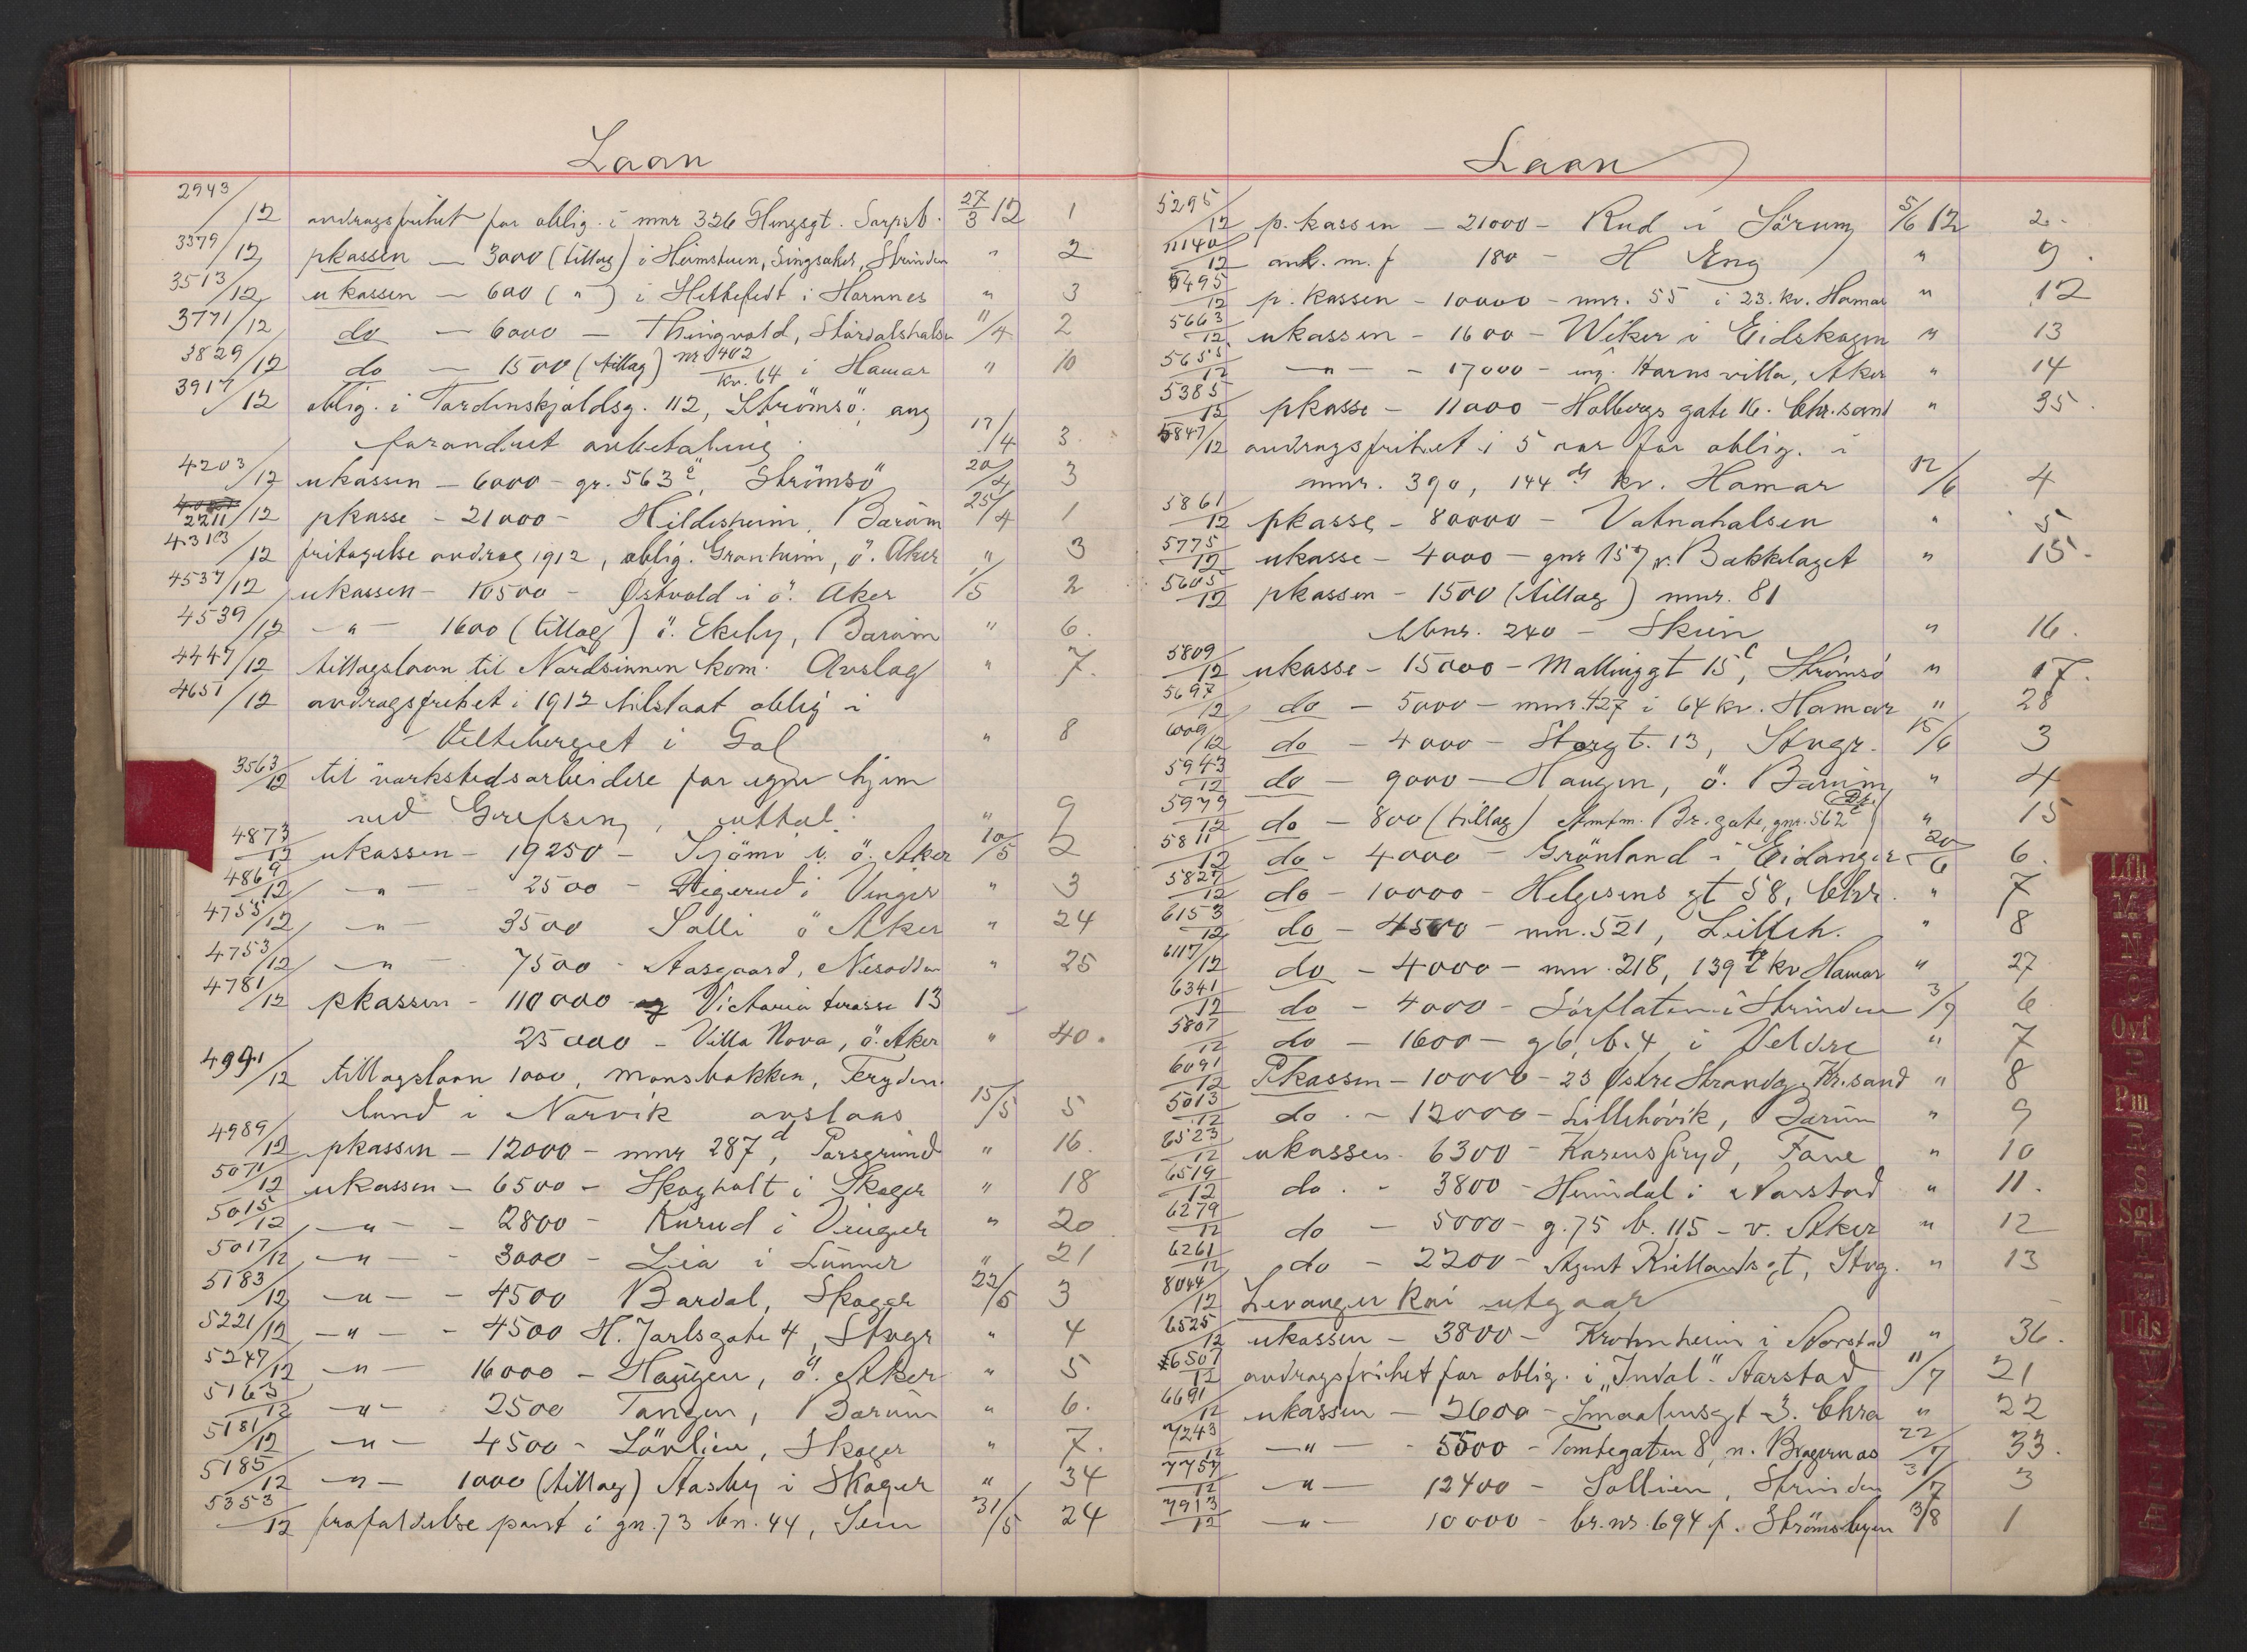 Laan
2943/12 avdragsfrihet for oblig. i mnr 326 Glengsgt. Sarpsb. 27/3 12 1
3379/12 pkassen — 3000 (tillæg) i Heimstuen, Singsaker, Strinden " 2
3513/12 ukassen — 600 ( " ) i i Hornnes " 3
3771/12 do — 6000 — Thingvold, Stördalshalsen 11/4 2
3829/12 do — 1500 (tillæg) nr 402 kv. 64 i Hamar " 10
3917/12 oblig. i Tordenskjoldsg. 112, Strömsö, ang
forandret avbetaling 17/4 3.
4203/12 ukassen — 6000 — gr. 563 e, Strömsö 20/4 3
2211/12 pkasse — 21000 — Hildesheim, Bærum 25/4 1
4313/12 fritagelse avdrag 1912, oblig. Granheim, ö. Aker " 3
4537/12 ukassen — 10500 — Østvold i ö. Aker 1/5 2
4539/12 — " — 1600 (tillæg) ö. Ekeby, Bærum " 6.
4447/12 tillægslaan til Nordsinnen kom. Avslag " 7.
4651/12 avdragsfrihet i 1912 tilstaat oblig i
Velteberget i Gol " 8
3563/12 til værkstedsarbeidere for egne hjem
ved Grefsen, uttal. " 9
4873/12 ukassen — 19250 — Tjömö i ö. Aker 10/5 2
4869/12 — " — 2500 — Digerud i Vinger " 3
4755/12 — " — 3500 Solli ö Aker " 24
4753/12 — " — 7500 — Aasgaard, Nesodden " 25
4781/12 pkassen — 110000 — Victoria terasse 13
25000 — Villa Nova, ö. Aker " 40.
4991/12 tillægslaan 1000, Monsbakken, Fryden-
lund i Narvik avslaas 15/5 5
4989/12 pkassen — 12000 — mnr 287 d, Porsgrund " 16.
5071/12 ukassen — 6500 — Skogholt i Skoger " 18
5015/12 — " — 2800 — Kurud i Vinger " 20
5017/12 — " — 3000 — Lia i Lunner " 21
5183/12 — " — 4500 Bardal, Skoger 22/5 3
5221/12 — " — 4500 H. Jarlsgate 4, Stvgr " 4
5247/12 — " — 16000 — Haugen, ö. Aker " 5
5163/12 — " — 2500 Tangen, Bærum " 6.
5181/12 — " — 4500 — Lövlien, Skoger " 7.
5185/12 — " — 1000 (tillæg) Aasby i Skoger " 34
5353/12 frafaldelse pant i gn. 73 bn. 44, Sem 31/5 24
Laan
5295/12 p. kassen — 21000 — Rud i Sörum 5/6 12 2.
11140/12 anb. m. f 180 — H Eng " 9.
5495/12 p. kassen — 10000 — mnr. 55 i 23. kv. Hamar " 12
5663/12 ukassen — 1600 — Weker i Eidskogen " 13
5655/12 — " — 17000 — ing. Harns villa, Aker " 14
5385/12 pkasse — 11000 — Holbergs gate 16. Chr.sand " 35.
5847/12 avdragsfrihet i 5 aar for oblig. i
mnr. 390, 144 de kv. Hamar 12/6 4
5861/12 pkasse — 80000 — Vatnahalsen " 5
5775/12 ukasse — 4000 — gnr 157 v. Bækkelaget " 15.
5605/12 pkassen — 1500 (tillæg) mnr. 81
bnr. 240 — Skien " 16.
5809/12 ukasse — 15000 — Mallinggt 15 c, Strömsö " 17.
5697/12 do — 5000 — mnr. 427 i 64 kv. Hamar " 28
6009/12 do — 4000 — Storgt. 13, Stvgr. 15/6 3
5943/12 do — 9000 — Haugen, ö. Bærum " 4
5979/12 do — 800 (tillæg) Amtm. Bl. gate, gnr. 562 c " 15
5811/12 do — 4000 — Grönland i Eidanger 20/6 6.
5827/12 do — 10000 — Helgesens gt 58, Chr. " 7
6153/12 do — 4500 — mn. 521, Lilleh. " 8
6117/12 do — 4000 — mnr. 218, 139 de kv Hamar " 27
6341/12 do — 4000 — Sörflaten i Strinden 3/7 6
5807/12 do — 1600 — g 6, b. 4 i Veldre " 7
6091/12 Pkassen — 10000 — 23 Østre Strandg. Kr.sand " 8
5013/12 do. — 12000 — Lillehövik, Bærum " 9
6523/12 ukassen — 6300 — Karensfryd, Fane " 10
6519/12 do. — 3800 — Heimdal i Aarstad " 11.
6279/12 do — 5000 — g. 75 b. 115 — v. Aker " 12
6261/12 do — 2200 — Agent Kiellands gt, Stvg. " 13
8044/12 Levanger kai utgaar
6525/12 ukassen — 3800 — Kroknheim i Aarstad " 36.
6507/12 avdragsfrihet for oblig. i „Indal" Aarstad 11/7 21
6691/12 ukassen — 2600 — Smaalensgt 3. Chra " 22
7243/12 — " — 5500 — Tomtegaten 8, n. Bragernæs 22/7 33.
7757/12 — " — 12400 — Sollien, Strinden 31/7 3
7913/12 — " — 10000 — br. nr. 694 f. Strömsbyen 3/8 1
Lfh
M
N
Ovf
Pm
R
S
Sgl
T
Uds